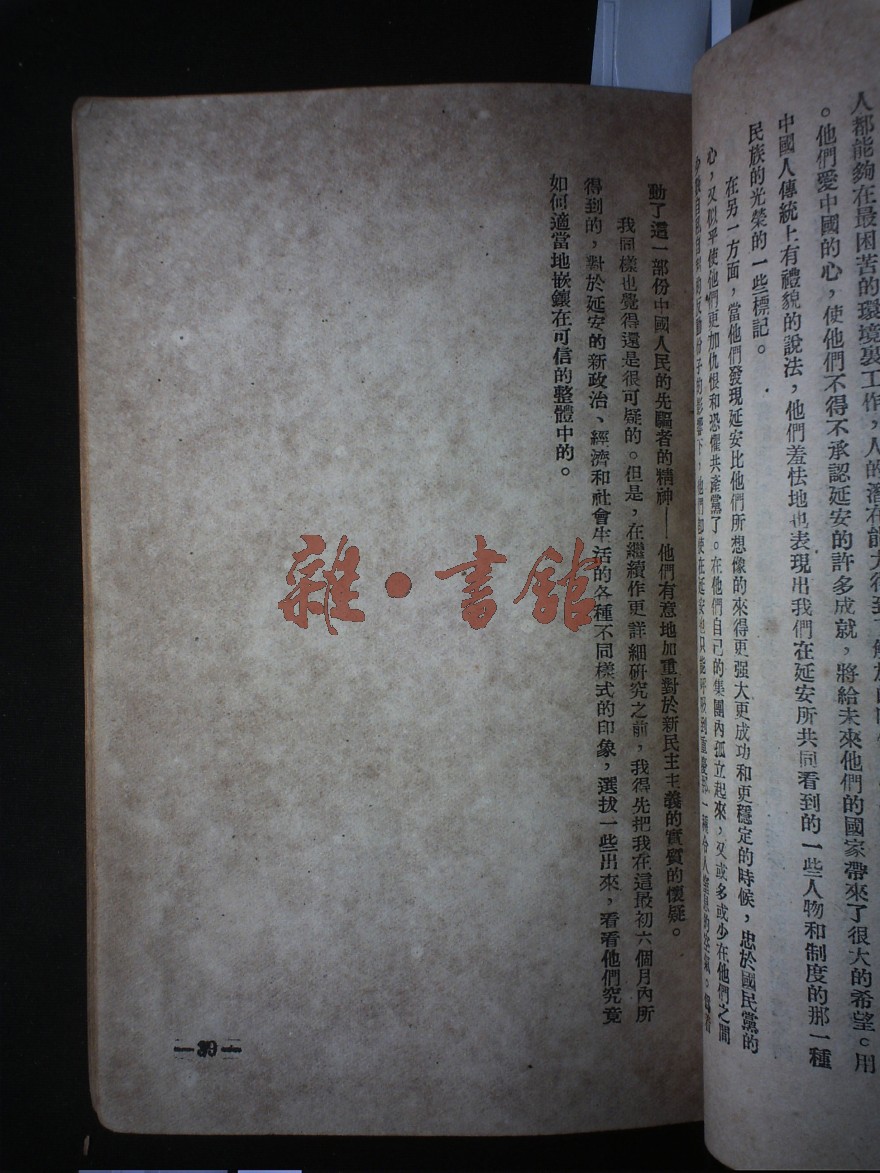 人都能夠在最困苦的環境裏工作，人的潛在能力得到了解放
。他們愛中國的心，使他們不得不承認延安的許多成就，將給未來他們的國家帶來了很大的希望。用
中國人傳統上有禮貌的說法，他們羞怯地也表現出我們在延安所共同看到的一些人物和制度的那一種
民族的光榮的一些標記。
在另一方面，當他們發現延安比他們所想像的來得更强大更成功和更穩定的時候，忠於國民黨的
心，又似乎使他們更加仇恨和恐懼共產黨了。在他們自己的集團內孤立起來，又或多或少在他們之間
動了這一部份中國人民的先驅者的精神——他們有意地加重對於新民主主義的實質的懷疑。
我同樣也覺得還是很可疑的。但是，在繼續作更詳細研究之前，我得先把我在這最初六個月內所
得到的，對於延安的新政治、經濟和社會生活的各種不同樣式的印象，選拔一些出來，看看他們究竟
如何適當地嵌鑲在可信的整體中的。
雜·書館